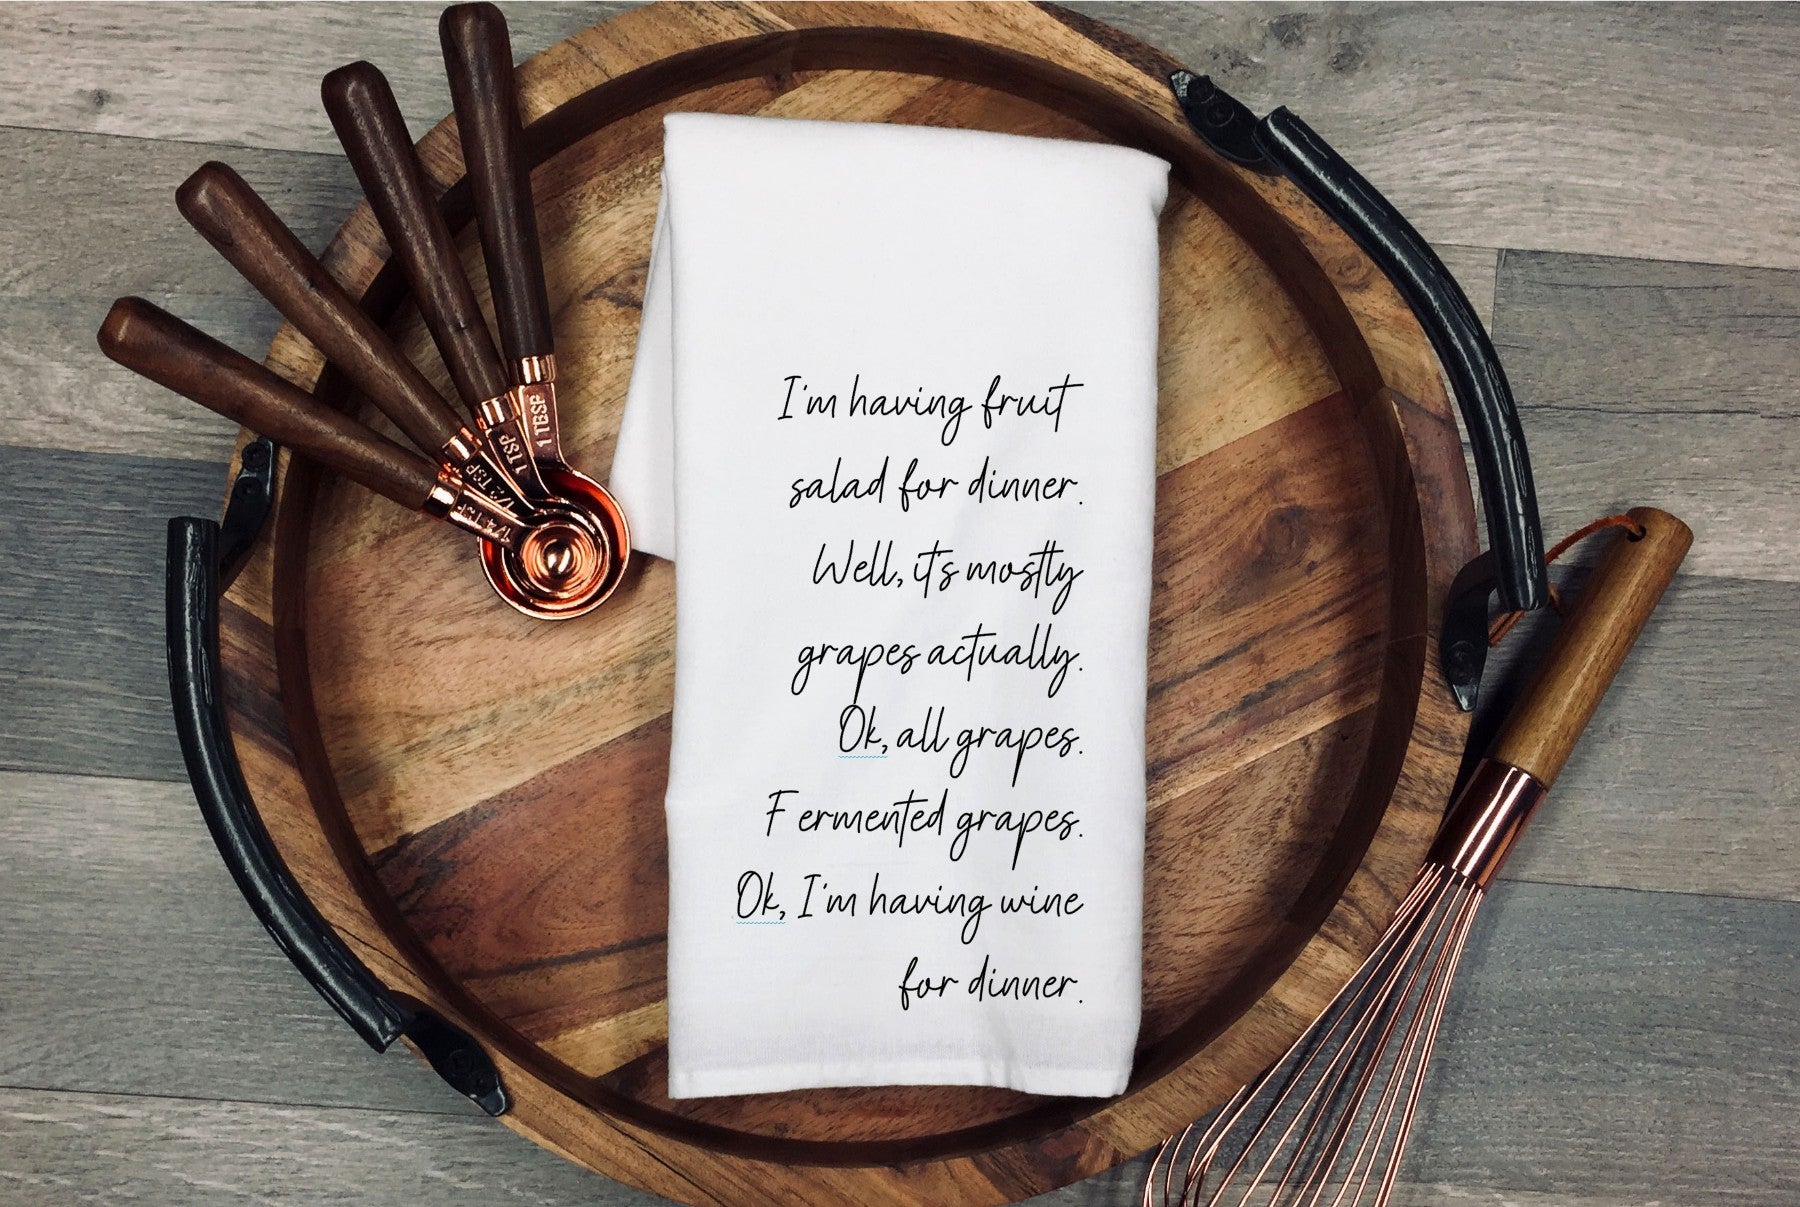 1 TBSP
1 TSP
1/2 TSP
1/4 TSP
I'm having fruit
salad for dinner.
Well, it's mostly
grapes actually.
Ok, all grapes.
F ermented grapes.
Ok, I'm having wine
for dinner.